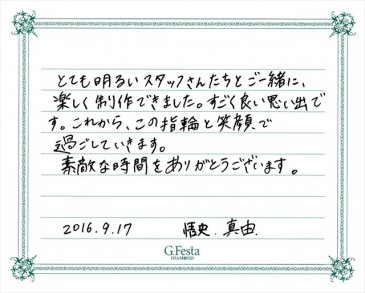 とても明るいスタッフさんたちとご一緒に、
楽しく制作できました。すごく良い思い出で
す。これから、この指輪と笑顔で
過ごしていきます。
素敵な時間をありがとうございます。
2016.9.17 悟史 真由.
G.Festa
DIAMOND